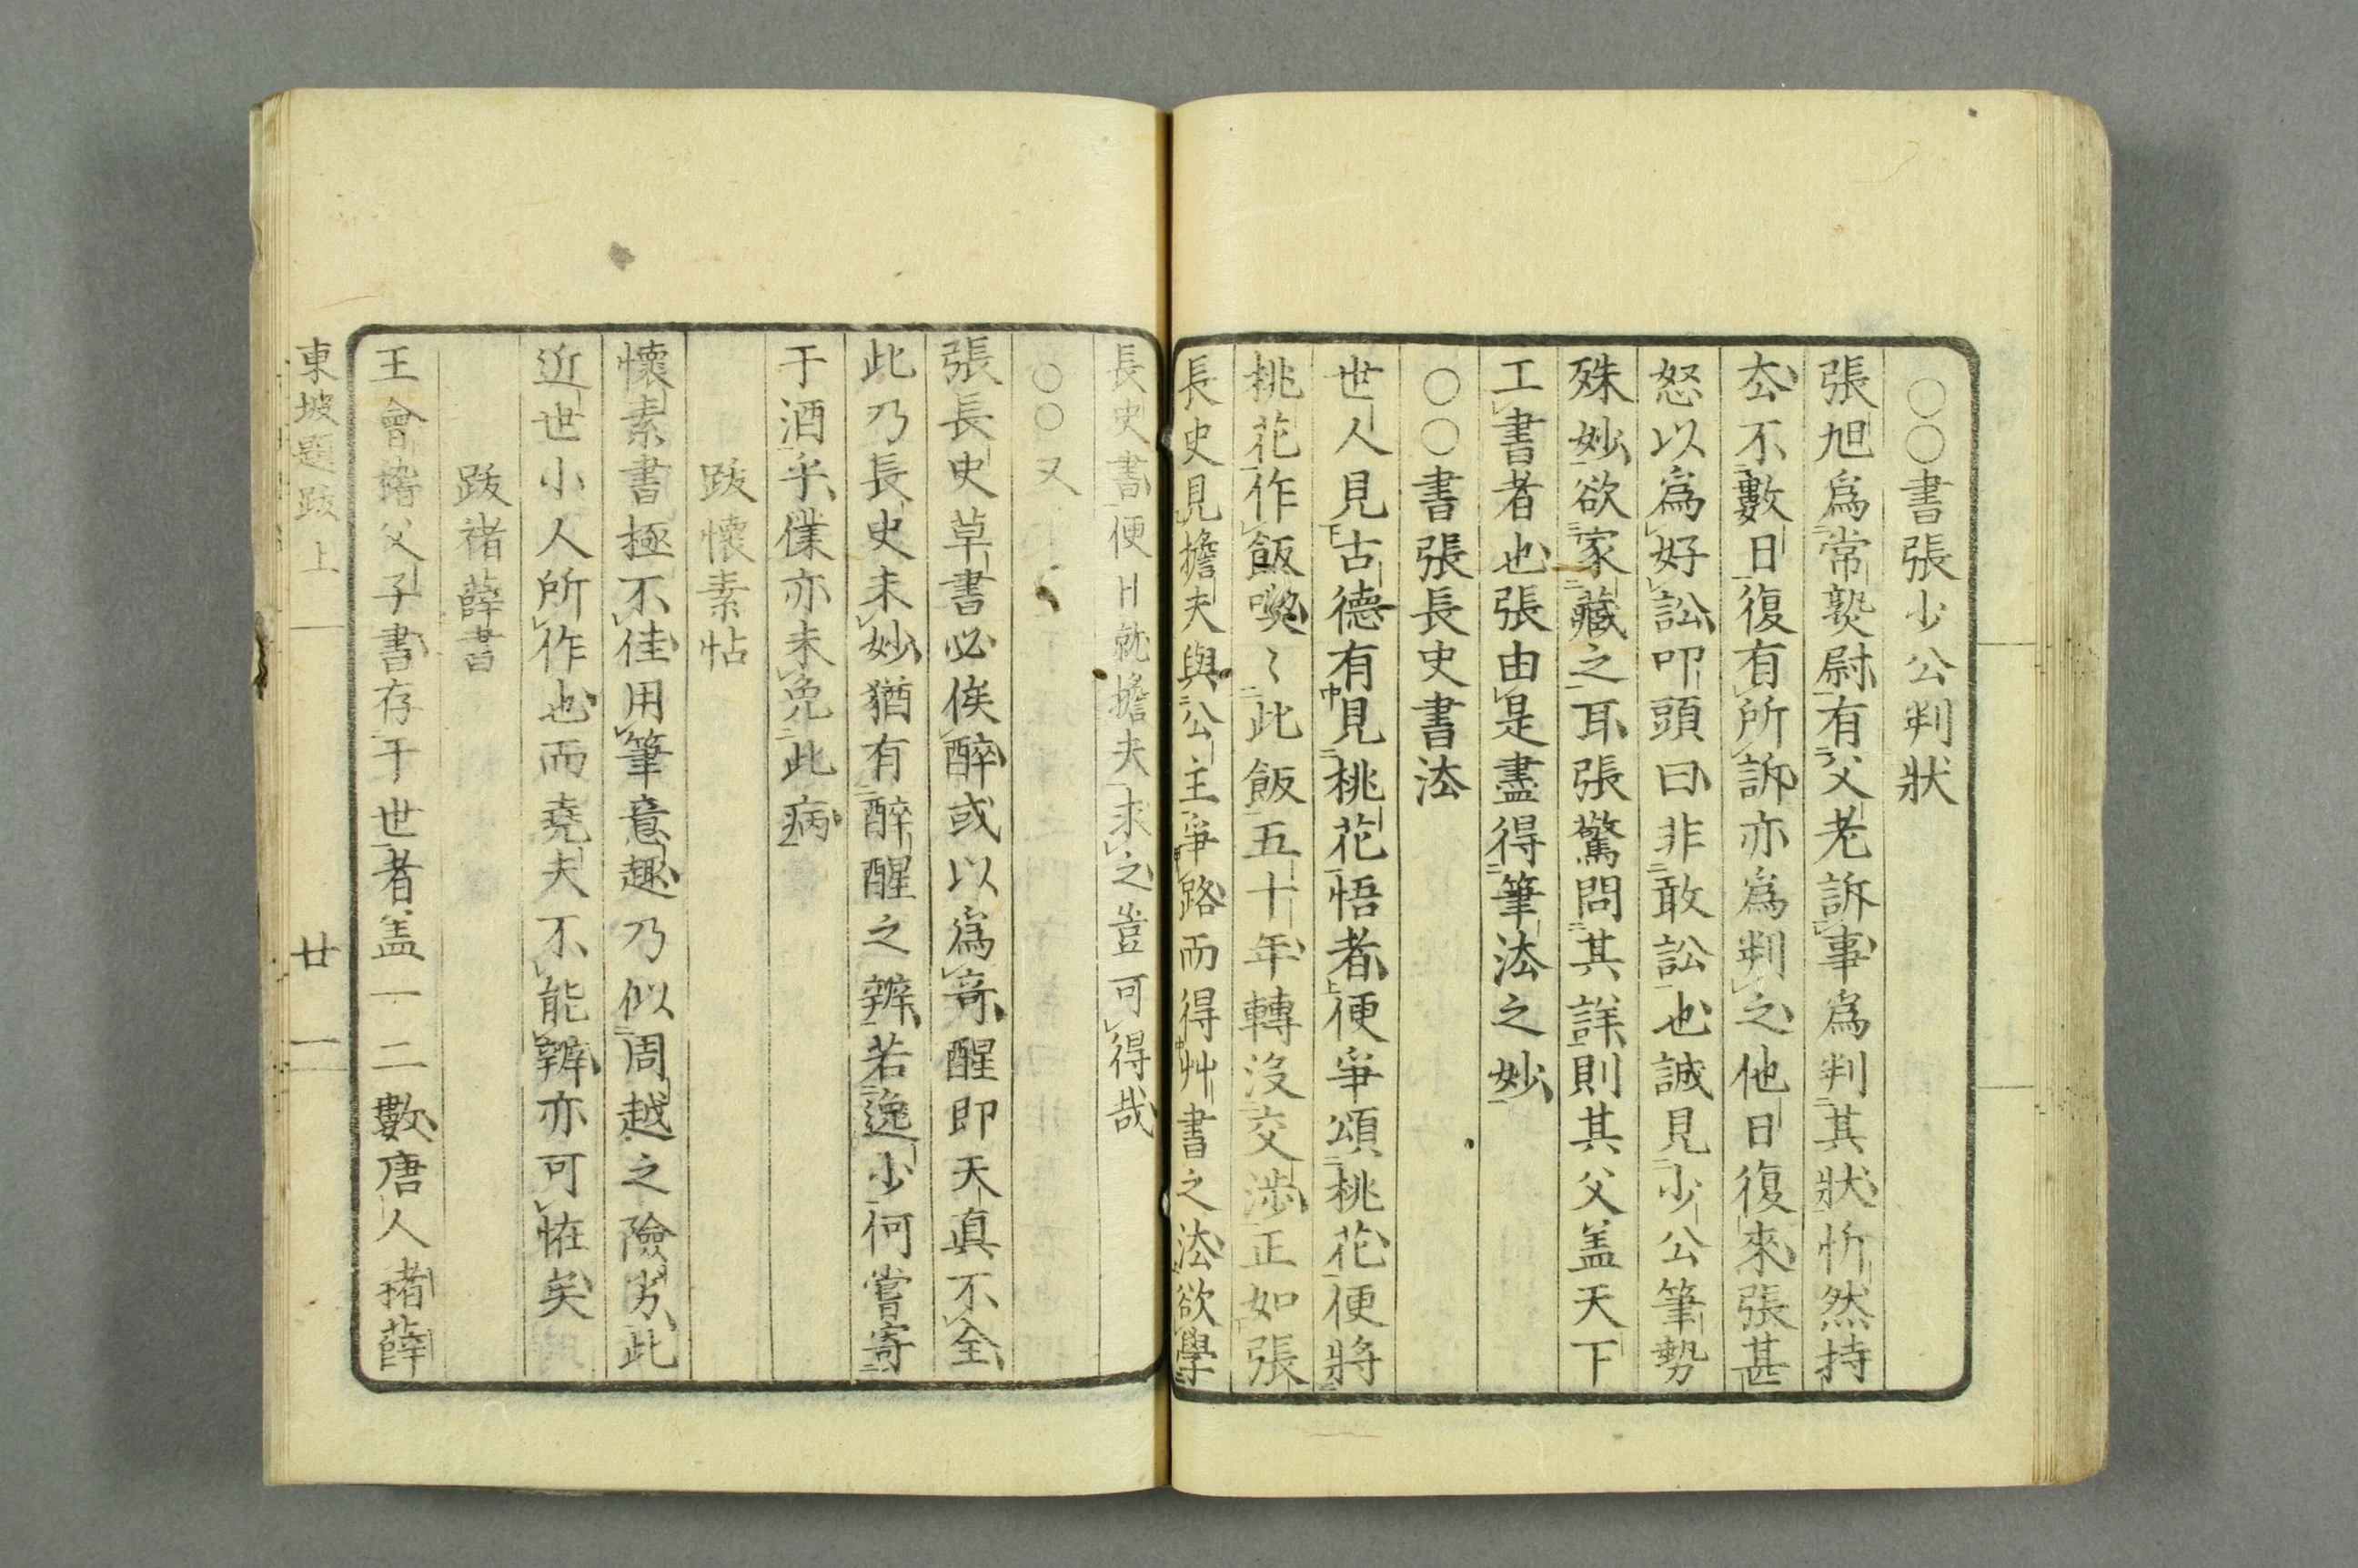 〇〇書張少公判狀
張旭爲常熟尉有父老訴事爲判其狀忻然持
去不數日復有所訴亦爲判之他日復來張甚
怒以爲好訟叩頭曰非敢訟也誠見少公筆勢
殊妙欲家藏之耳張驚問其詳則其父盖天下
工書者也張由是盡得筆法之妙
〇〇書張長史書法
世人見古德有見桃花悟者便爭頌桃花便將
桃花作飯喫〻此飯五十年轉没交涉正如張
長史見擔夫與公主爭路而得艸書之法欲學
長史書便日就擔夫求之豈可得哉
〇〇又
張長史草書必俟醉或以爲竒醒即天真不全
此乃長史未妙猶有醉醒之辨若逸少何嘗寄
于酒乎僕亦未免此病
跋懷素帖
懷素書極不佳用筆意趣乃似周越之險劣此
近世小人所作也而堯夫不能辨亦可恠矣
跋褚薛書
王會稽父子書存于世者盖一二數唐人褚薛
東坡題跋上
廿一